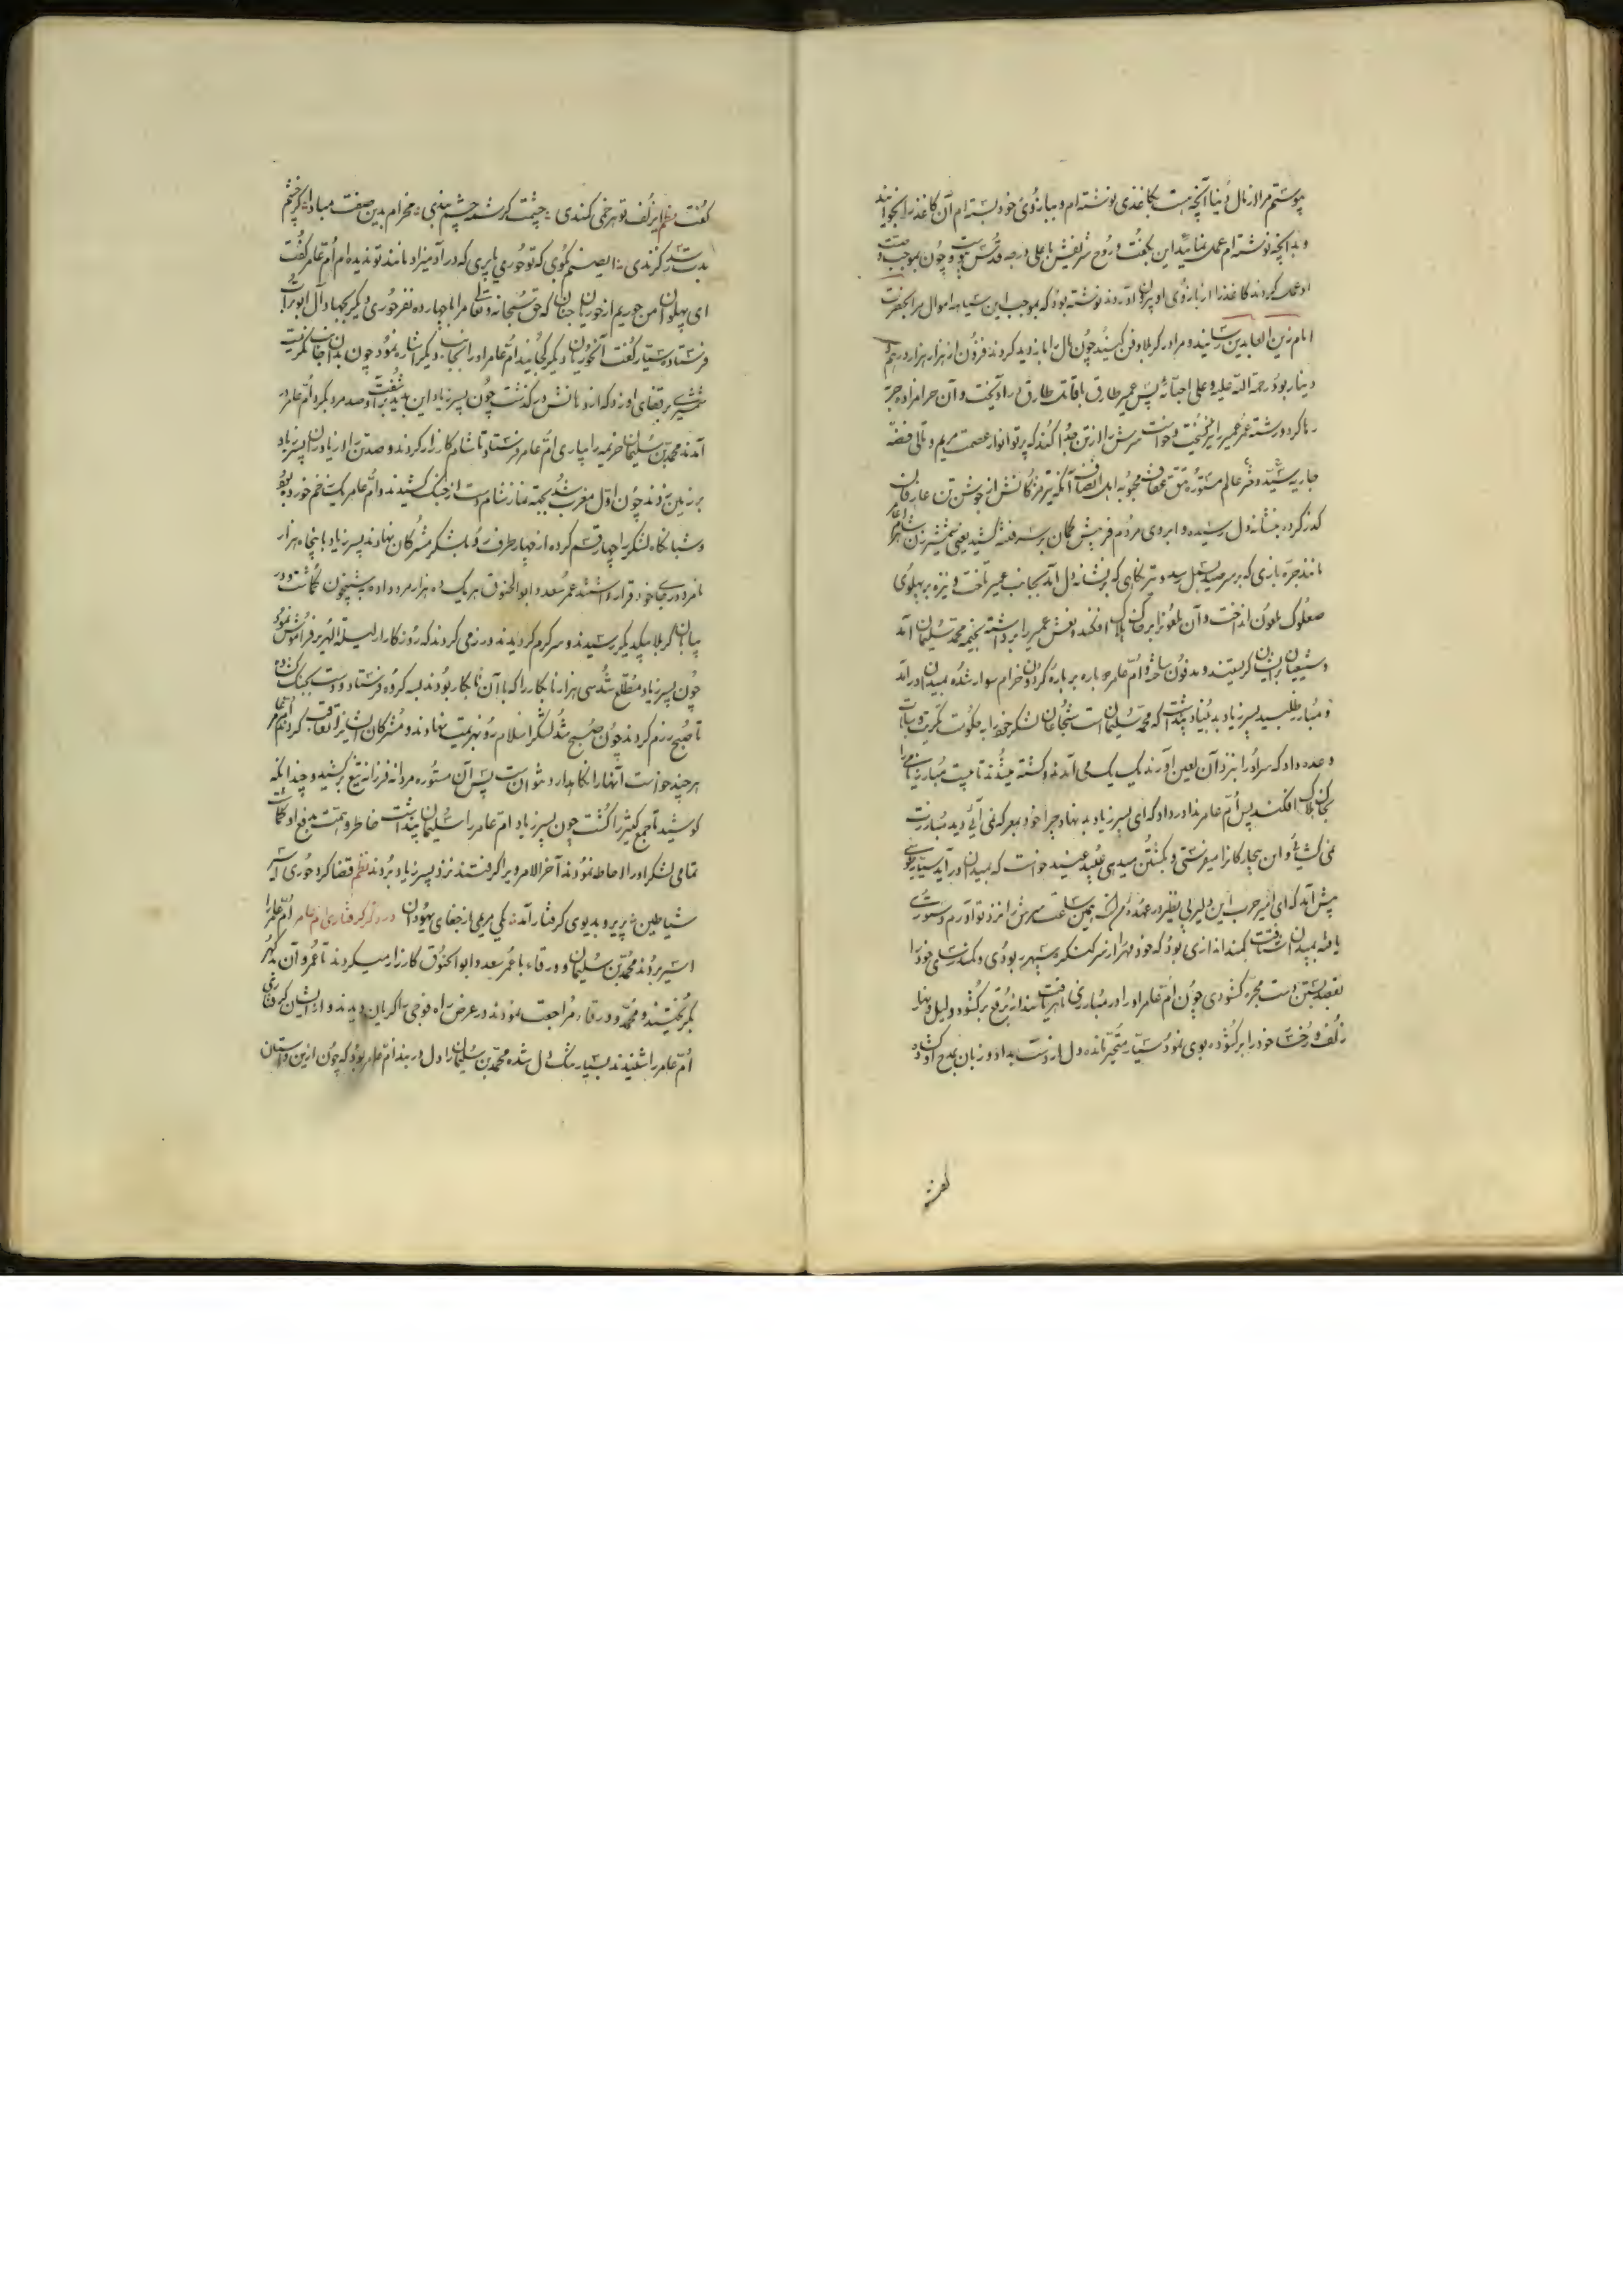 پیوستم مرا از مال دنیا آنچه هست بکاغذی نوشته ام و ببازوی خود بسته ام آن کاغذ را بخوانید
و بدانچه نوشته ام عمل نمائید این بگفت و روح شریفش باعلی درجه قدس پیوست و چون بموجب وصیت
او عمل کردند کاغذ را از بازوی او بیرون آوردند نوشته بود که بموجب این سیاهه اموال مرا بحضرت
امام زین العابدین رسانید و مرا در کربلا دفن کنید چون مال را بازدید کردند فزون از هزار هزار درهم و
دینار بود رحمة الله علیه و علی احبائه پس عمیر طارق باقامت طارق در آویخت و آن حرامزاده حربه
رها کرد و رشته عمر عمیر را بگسیخت و خواست سرش را از تن جدا کند که پرتو انوار عصمت مریم و ثانی فضه
جاریه سیده دختر عالم مستوره تتق عفاف محبوبه اهل انصاف آنکه تیر مژگانش از جوشن تن عارفان
گذر کرده بنشانه دل رسیده و ابروی مردم فریبش کمان بر سر فتنه کشید یعنی شمشیر زن
مانند جره بازی که بر سر صید بسمل رسد و تیر نگاهی که بر نشانه دل آید بجانب عمیر تاخت و نیزه بر پهلوی
صعلوک ملعون انداخت و آن ملعون را بر خاک هلاک افکند و نعش عمیر را برداشته بخیمه محمد سلیمان آمد
و شیعیان بر ایشان گریستند و مدفون ساختند و ام عامر دوباره بر باره گردون خرام سوار شده بمیدان در آمد
و مبارز طلبید پسر زیاد بد بنیاد پنداشت که محمد سلیمان است شجاعان لشکر خود را بحکومت تکریت و بیات
وعده داد که سر او را بنزد آن لعین آورند یک یک می آمدند و کشته میشدند تا بیست مبارز نامی را
بخاک هلاک افکند پس ام عامر ندا در داد که ای پسر زیاد بد نهاد چرا خود بمعرکه نمی آئی و دید مبارزت
نمی گشائی و این بیچارگانرا میفرستی و بکشتن میدهی پلید عنید خواست که بمیدان در آید سیار
پیش آمد که ای امیر حرب این دلیر بی نظیر در عهده من است همین ساعت سرش را نزد تو آورم دستوری
یافته بمیدان شتافت کمند اندازی بود که خود مهر را از سر کنگره سپهر ربودی و کمند رسای خود را
بقصد بستن دست مجره گشودی چون ام عامر او را در مبارزی ماهر یافت بند از برقع بر گشود و لیل و نهار
زلف و رخسار خود را بر گشوده بوی نمود سیار متحیر مانده دل از دست بداد و زبان بمدح او گشاد
گفت نظم ای زلف تو هر خمی کمندی چشمت بکرشمه چشم بندی مخرام بدین صفت مبادا کز چشم
بدت رسد گزندی ای صنم بگوی که تو حوری یا پری که در آدمیزاد مانند تو ندیده ام ام عامر گفت
ای پهلوان من حوریم از حوریان جنان که حق سبحانه و تعالی مرا با چهارده نفر حوری دیگر بجهاد آل ابوتراب
فرستاده سیار گفت آن حوریان دیگر کجایند ام عامر او را بجانب دیگر اشاره نمود چون بدان جانب نگریست
شمشیری بر قفای او زد که از دهانش در گذشت چون پسر زیاد این بدید بر آشفت و صد مرد بگرد ام عامر در
آمدند محمد بن سلیمان خزیمه را بیاری ام عامر فرستاد تا شام کارزار کردند و صد تن را از یاوران پسر زیاد
بر زمین زدند چون اول مغرب شد بجهة نماز شام دست از جنگ کشیدند و ام عامر یک زخم خورده بود
و شبانگاه لشکر را چهار قسم کرده از چهار طرف رو بلشکر مشرکان نهادند پسر زیاد با پنجاه هزار
نامرد در جای خود قرار داشتند عمر سعد و ابوالحنوق هر یک ده هزار مرد داده بشبیخون گماشت و در
بیابان کربلا بیکدیگر رسیدند و سر گرم گردیدند و رزمی کردند که روزگار از لیلة الهریر فراموش نمود
چون پسر زیاد مطلع شد سی هزار نابکار را که با آن نابکار بودند بسه گروه فرستاد و دست بجنگ گشوده
تا صبح رزم کردند چون صبح شد لشکر اسلام رو بهزیمت نهادند و مشرکان ایشانرا تعاقب کردند ام عامر
هر چند خواست آنها را نگاهدارد نتوانست پس آن مستوره مردانه فرزانه تیغ بر کشید و چندانکه
کوشید تا جمع کثیر را کشت چون پسر زیاد ام عامر را سلیمان پنداشت خاطر و همت بدفع او گماشت
تمامی لشکر او را احاطه نمودند آخر الامر ویرا گرفتند نزد پسر زیاد بردند نظم قضا کرد حوری اسیر
شیاطین پریرو بدیوی گرفتار آمد یکی مریمی از جفای یهودان در ذکر گرفتاری ام عامر ام عامر را
اسیر بردند محمد بن سلیمان و ورقاء با عمر سعد و ابوالحنوق کارزار میکردند تا عمر و آن بد گهر
بگریختند و محمد و ورقاء مراجعت نمودند در عرض راه فوجی را گریان دیدند و از ایشان گرفتاری
ام عامر را شنیدند بسیار تنگ دل شده محمد بن سلیمان را دل در بند ام عامر بود که چون ازین داستان